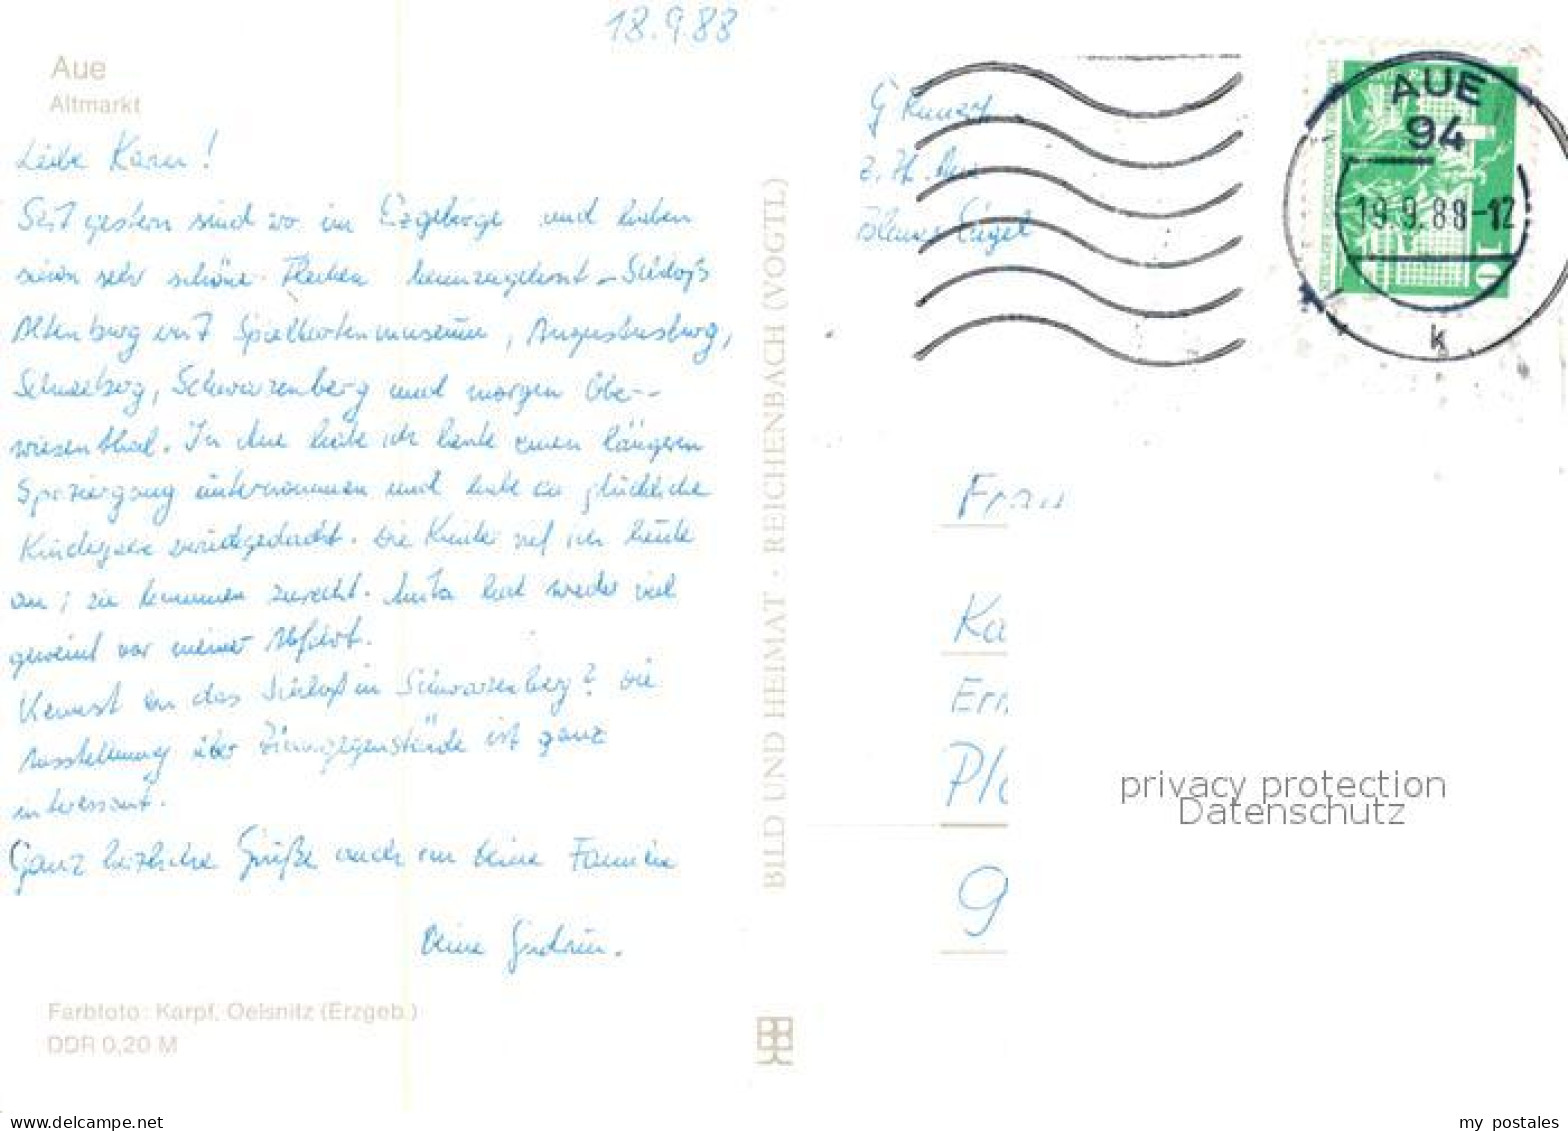 18.9.88
Aue
Altmarkt
Liebe Karin!
Seit gestern sind wir im Erzgebirge und haben
schon sehr schöne Flecken kennengelernt -
Altenburg mit Spielkartenmuseum, Augustusburg,
Schneeberg, Schwarzenberg und morgen Ober-
wiesenthal. In Aue habe ich heute einen längeren
Spaziergang unternommen und habe an glückliche
zurückgedacht. Die Kinder rief ich heute
an; sie kommen zurecht. Anita hat wieder viel
geweint vor meiner Abfahrt.
Kennst du das Schloß in Schwarzenberg? Die
Ausstellung über Zinngegenstände ist ganz
interessant.
Ganz herzliche Grüße auch an Deine Familie
Deine Gudrun.
Farbfoto: Karpf, Oelsnitz (Erzgeb.)
DDR 0,20 M
BILD UND HEIMAT · REICHENBACH (VOGTL)
G
z. Zt. Aue
Blauer Engel
AUE
94
19.9.88-12
k
10
Frau
Ka
Ern
Pla
9
privacy protection
Datenschutz
www.delcampe.net
my_postales